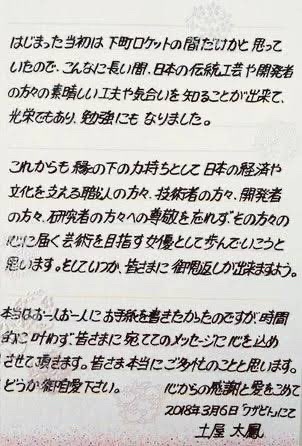 はじまった当初は下町ロケットの間だけかと思って
いたので、こんなに長い間、日本の伝統工芸や開発者
の方々の素晴しい工夫や気合いを知ることが出来て、
光栄でもあり、勉強にも なりました。
これからも 縁の下の力持ちとして 日本の経済や
文化を支える職人の方々、技術者の方々、開発者
の方々、研究者の方々への尊敬を忘れず、その方々の
心に届く芸術を目指す女優として歩んでいこうと
思います。そしていつか、皆さまに 御恩返しが出来ますよう。
本当はお一人お一人に お手紙を書きたかったのですが、時間
的に叶わず、皆さまに宛ててのメッセージに心を込め
させて頂きます。皆さま本当にご多忙のことと思います。
どうか 御自愛下さい。 心からの感謝と愛をこめて
2018年3月6日「ワガビト」にて
土屋 太鳳